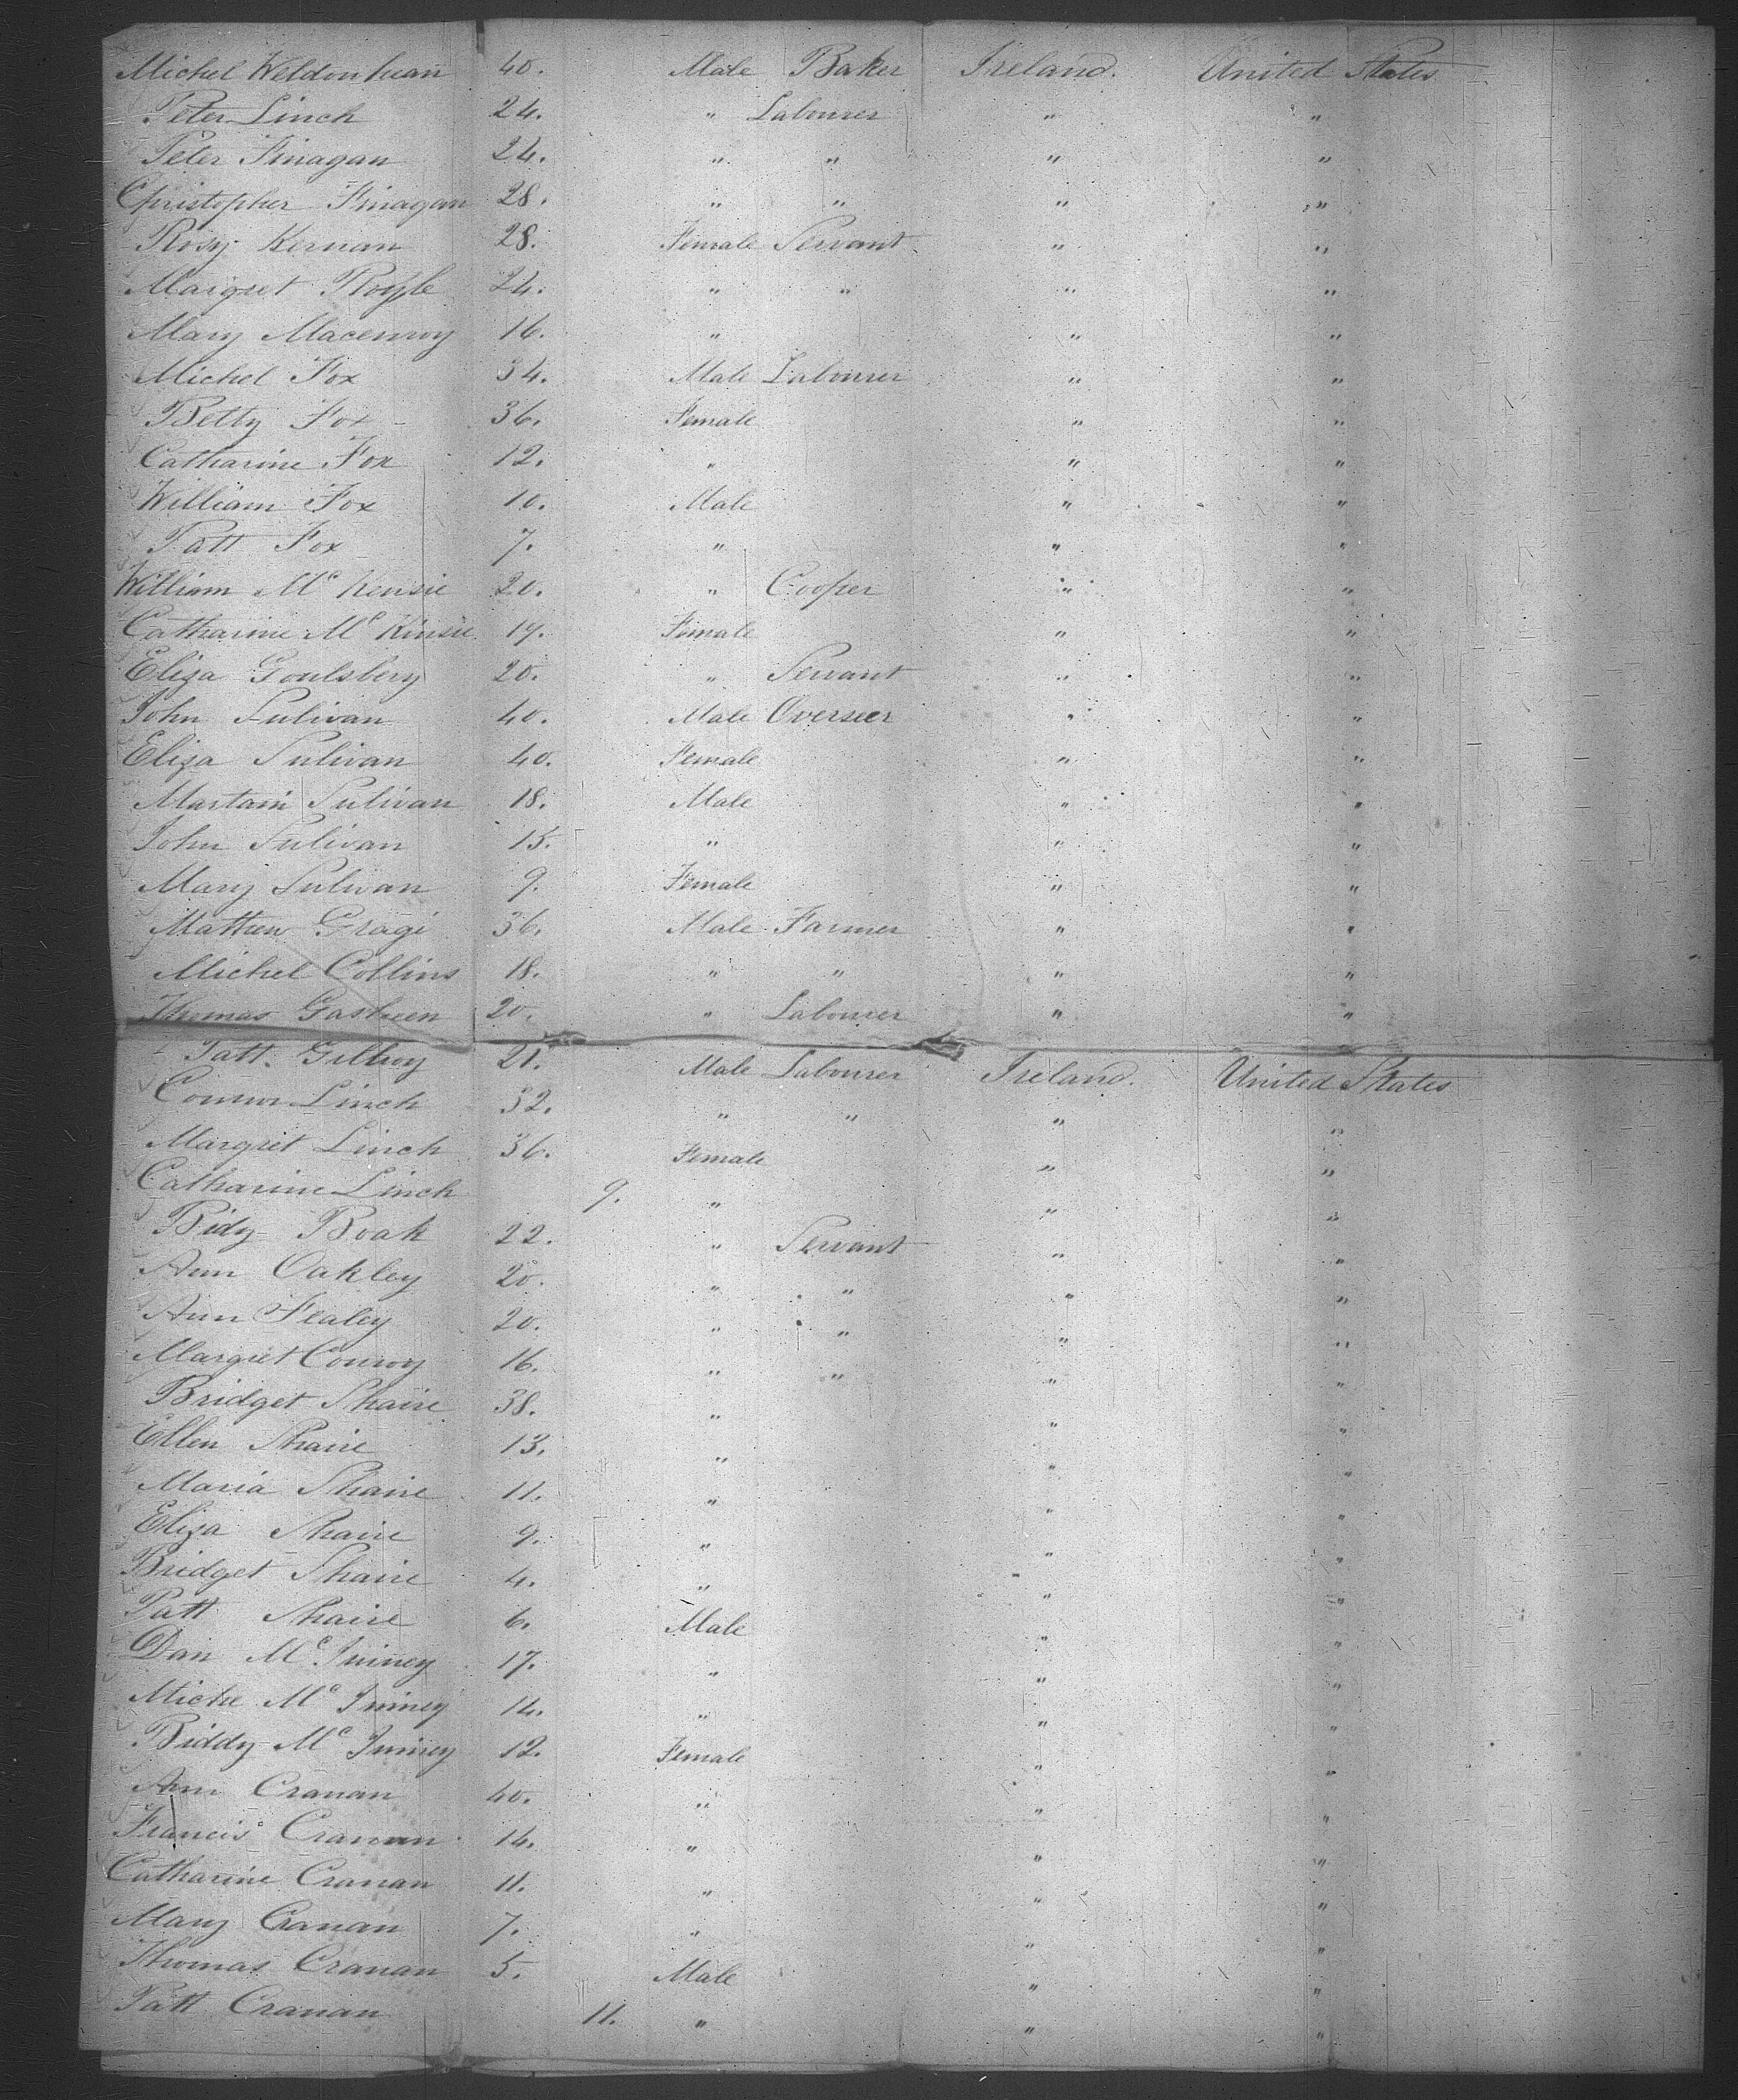 Michel Weldonhean 40. Male Baker Ireland. United States
Peter Linch 24. " Labourer " "
Peter Finagan 24. " " " "
Christopher Finagan 28. " " " "
Rosy Kernan 28. Female Servant " "
Margret Royle 24. " " " "
Mary Macenroy 16. " " "
Michel Fox 34. Male Labourer " "
Betty Fox 36. Female " "
Catharine Fox 12. " " "
William Fox 10. Male " "
Patt Fox 7. " " "
William Mc Kensie 20. " Cooper " "
Catharine Mc Kinsie 19. Female " "
Eliza Goulsbery 20. " Servant " "
John Sulivan 40. Male Overseer " "
Eliza Sulivan 40. Female " "
Martain Sulivan 18. Male " "
John Sulivan 15. " " "
Mary Sulivan 9. Female " "
Mathew Gragi 36. Male Farmer " "
Michel Collins 18. " " " "
Thomas Gasheen 20. " Labourer " "
Patt. Gillroy 21. Male Labourer Ireland. United States
Connor Linch 32. " " " "
Margret Linch 36. Female " "
Catharine Linch 9. " " "
Bidy Boak 22. " Servant " "
Ann Oakley 20. " " " "
Ann Fealey 20. " " " "
Margret Conroy 16. " " " "
Bridget Shaire 38. " " "
Ellen Shaire 13. " " "
Maria Shaire 11. " " "
Eliza Shaire 9. " " "
Bridget Shaire 4. " " "
Patt Shaire 6. Male " "
Dan Mc Juiney 17. " " "
Miche Mc Juiney 14. " " "
Biddy Mc Juiney 12. Female " "
Ann Cranan 40. " " "
Francis Cranan 14. " " "
Catharine Cranan 11. " " "
Mary Cranan 7. " " "
Thomas Cranan 5. Male " "
Patt Cranan 11. " " "